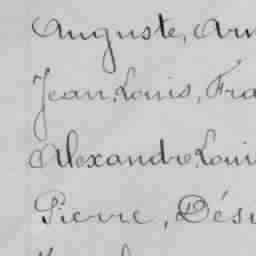 Auguste, Arm
Jean, Louis, Fra
Alexandre Loui
Pierre, Dési